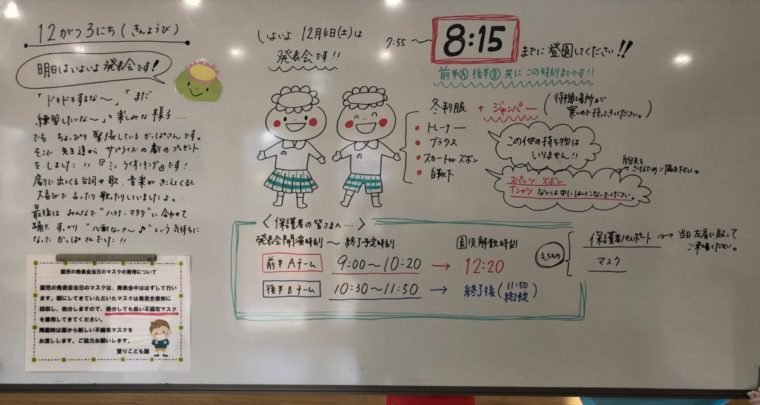 12がつ3にち(きんようび)
明日はいよいよ発表会です!
「ドキドキするな〜」「まだ
練習したいな〜」と楽しみな様子…
でも ちょっぴり緊張しているかっぱさんです。
そこで 先生達から サプライズの劇のプレゼント
をしました!!『ミニ ライオンキング』です!
劇に出てくる台詞や歌、音楽がきこえてくると
大喜びで ふったり歌ったりしていましたよ。
最後は みんなで"ハクナ・マタタ"に合わせて
踊り、すっかり"心配なさ〜"という気持ちに
なったかっぱさんでした!!
園児の発表会当日のマスクの着用について
園児の発表会のマスクは、発表会中ははずして行い
ます。朝にしてきていただいたマスクは発表会直前に
回収し、処分しますので、処分しても良い不織布マスク
を着用してきてください。
降園時は園から新しい不織布マスクを
お渡しします。ご協力お願いします。
愛りこども園
いよいよ 12月4日(土)は
発表会です!!
7:55〜
8:15
までに登園してください!!
前半Ⓐ 後半Ⓑ 共に この時刻までです!!
冬制服 + ジャンパー
(待機場所が
寒いので持ってきてください。)
・トレーナー
・ブラウス
・スカートorズボン
・白靴下
この他の持ち物は
いりません!!
スパッツ、ズボン
Tシャツ などは中にはいてこないでください。
〈保護者の皆さまへ…〉
発表会開演時刻 〜 終了予定時刻
園児解散時刻
前半Aチーム 9:00〜10:20 → 12:20
後半Bチーム 10:30〜11:50 → 終了後(11:50終了予定)
もちもの
保護者パスポート → 当日左肩に貼って
ご来場ください。
マスク